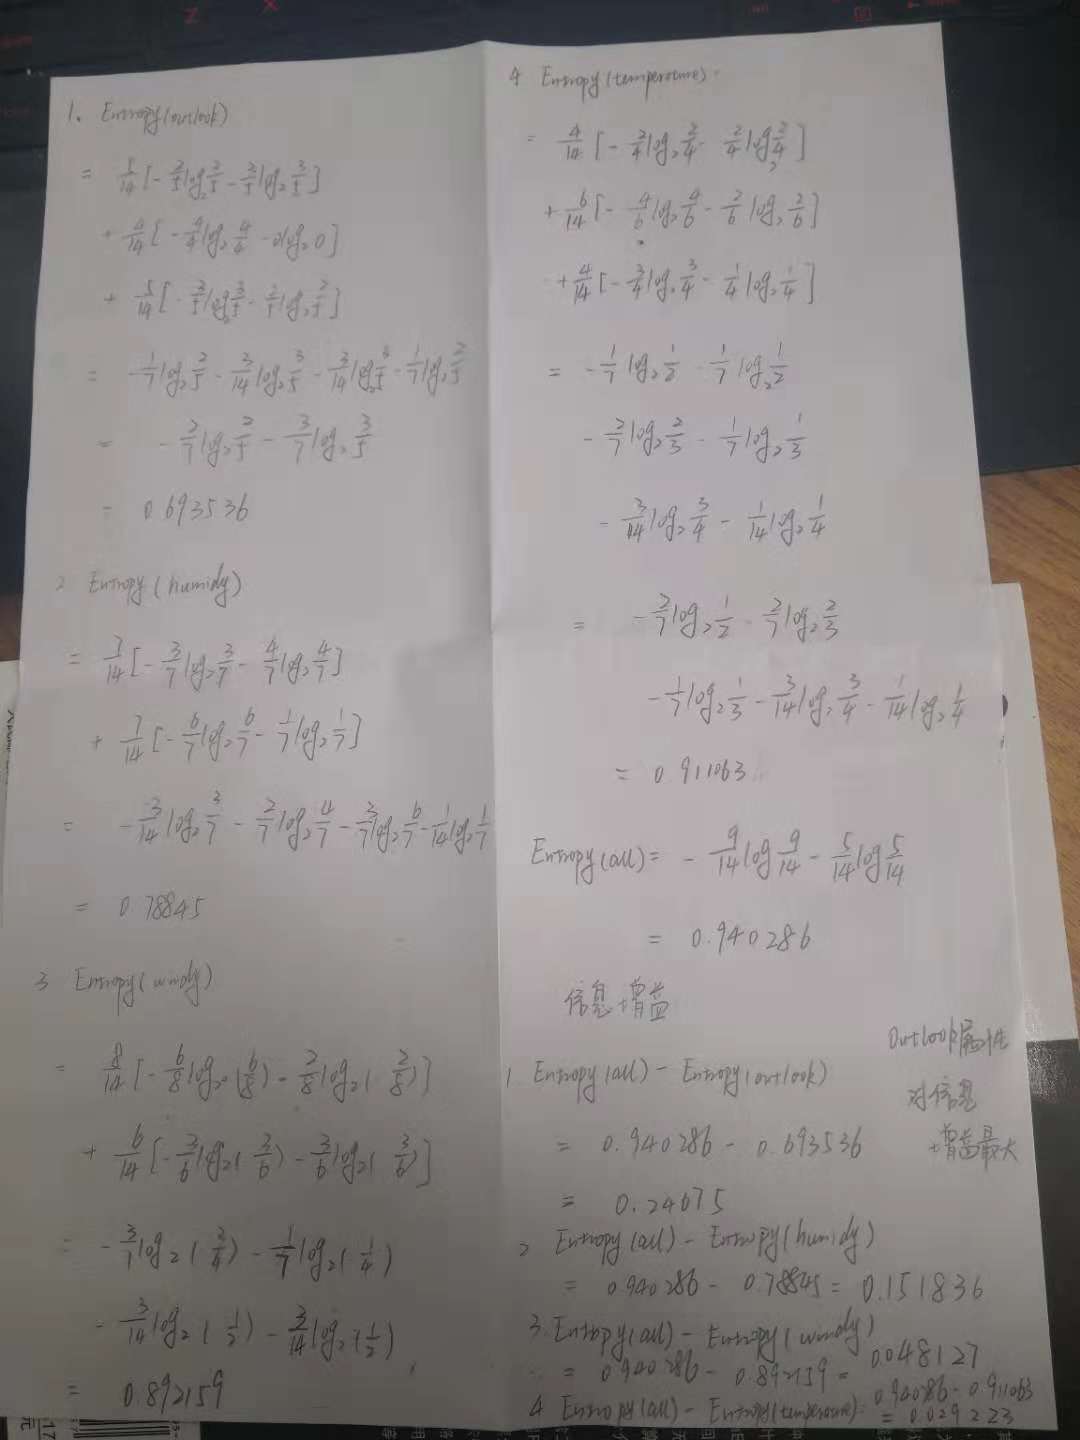 1. Entropy(outlook)
= 5/14 [ - 2/5 log₂ 2/5 - 3/5 log₂ 3/5 ]
+ 4/14 [ - 4/4 log₂ 4/4 - 0log₂ 0 ]
+ 5/14 [ - 3/5 log₂ 3/5 - 2/5 log₂ 2/5 ]
= - 1/7 log₂ 2/5 - 3/14 log₂ 3/5 - 3/14 log₂ 3/5 - 1/7 log₂ 2/5
= - 2/7 log₂ 2/5 - 3/7 log₂ 3/5
= 0.693536
2 Entropy(humidy)
= 7/14 [ - 3/7 log₂ 3/7 - 4/7 log₂ 4/7 ]
+ 7/14 [ - 6/7 log₂ 6/7 - 1/7 log₂ 1/7 ]
= - 3/14 log₂ 3/7 - 2/7 log₂ 4/7 - 3/7 log₂ 6/7 - 1/14 log₂ 1/7
= 0.78845
3 Entropy(windy)
= 8/14 [ - 6/8 log₂ (6/8) - 2/8 log₂ (2/8) ]
+ 6/14 [ - 3/6 log₂ (3/6) - 3/6 log₂ (3/6) ]
= - 3/7 log₂ (3/4) - 1/7 log₂ (1/4)
- 3/14 log₂ (1/2) - 3/14 log₂ (1/2)
= 0.892159
4 Entropy(temperature)
= 4/14 [ - 2/4 log₂ 2/4 - 2/4 log₂ 2/4 ]
+ 6/14 [ - 4/6 log₂ 4/6 - 2/6 log₂ 2/6 ]
+ 4/14 [ - 3/4 log₂ 3/4 - 1/4 log₂ 1/4 ]
= - 1/7 log₂ 1/2 - 1/7 log₂ 1/2
- 2/7 log₂ 2/3 - 1/7 log₂ 1/3
- 3/14 log₂ 3/4 - 1/14 log₂ 1/4
= - 2/7 log₂ 1/2 - 2/7 log₂ 2/3
- 1/7 log₂ 1/3 - 3/14 log₂ 3/4 - 1/14 log₂ 1/4
= 0.911063
Entropy(all) = - 9/14 log 9/14 - 5/14 log 5/14
= 0.940286
信息增益
Outlook属性
对信息
增益最大
1. Entropy(all) - Entropy(outlook)
= 0.940286 - 0.693536
= 0.24675
2 Entropy(all) - Entropy(humidy)
= 0.940286 - 0.78845 = 0.151836
3. Entropy(all) - Entropy(windy)
= 0.940286 - 0.892159 = 0.048127
4 Entropy(all) - Entropy(temperature) = 0.940286 - 0.911063
= 0.029223